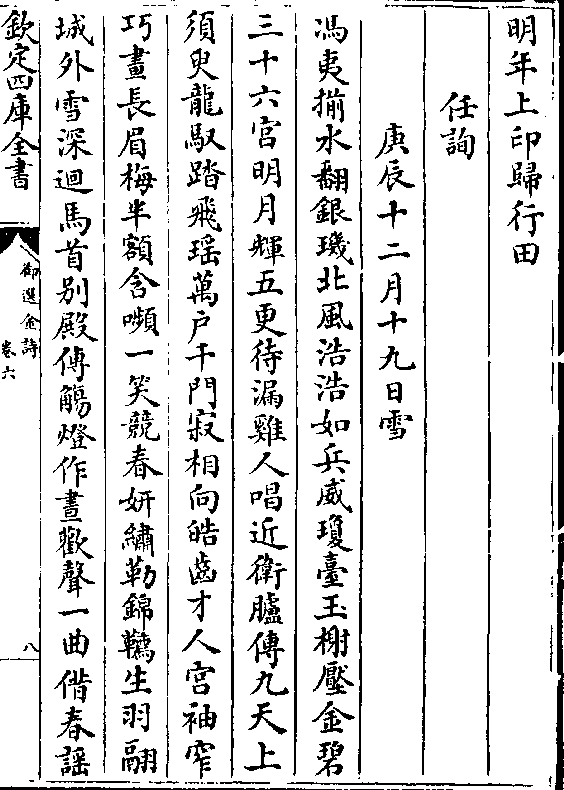 明年上印歸行田
任詢
庚辰十二月十九日雪
馮夷揃水翻銀璣北風浩浩如兵威瓊臺玉榭壓金碧
三十六宮明月輝五更待漏雞人唱近衛臚傳九天上
須臾龍馭踏飛瑤萬戸千門寂相向皓齒才人宮袖窄
巧畫長眉梅半額含嚬一笑競春妍繡勒錦韉生羽翮
城外雪深迴馬首别殿傳觴燈作晝歡聲一曲偕春謡
欽定四庫全書
御選金詩
卷六
八